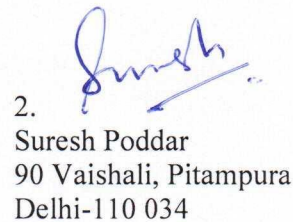 Suresh
2.
Suresh Poddar
90 Vaishali, Pitampura
Delhi-110 034